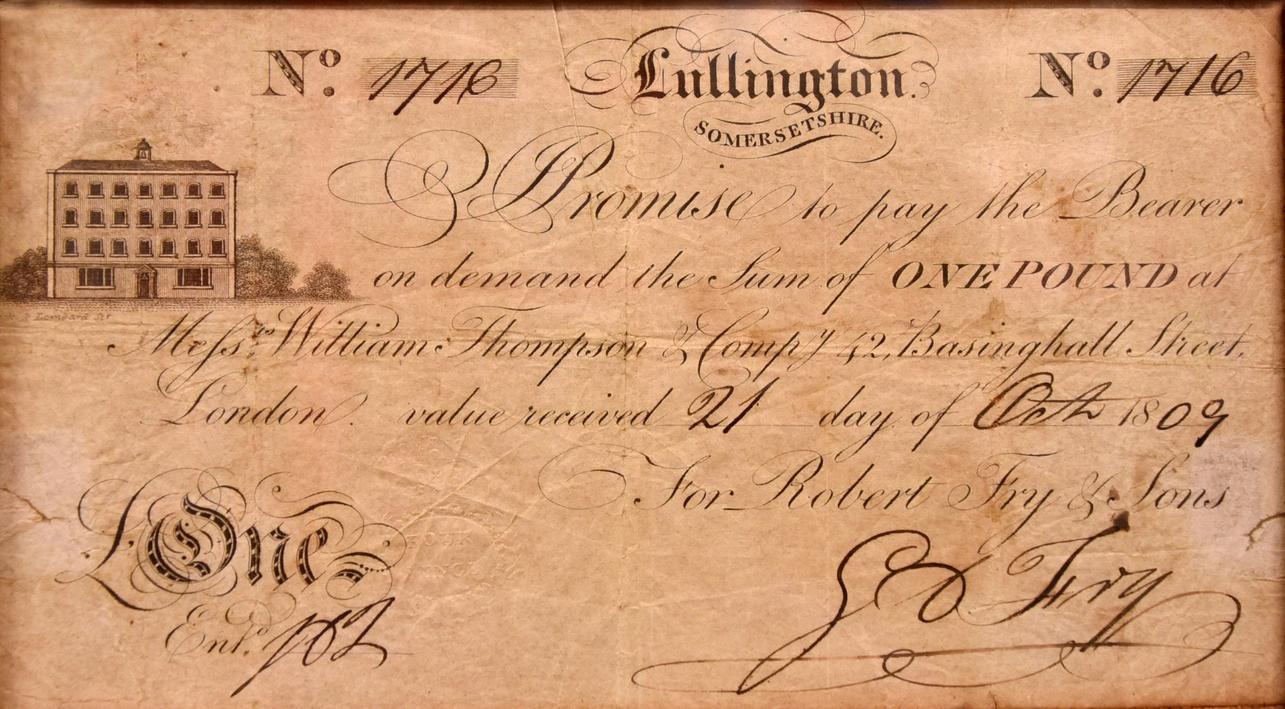 No. 1716 Lullington. No. 1716
SOMERSETSHIRE.
I Promise to pay the Bearer
on demand the Sum of ONE POUND at
Messrs. William Thompson & Compy 42, Basinghall Street,
London. value received 21 day of Oct 1809
For Robert Fry & Sons
£One
Entd.
Fry